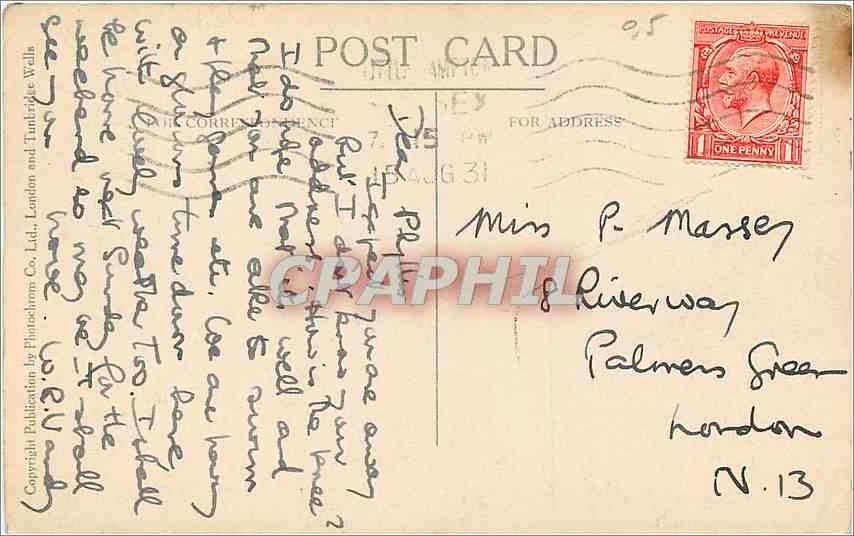 POST CARD
FOR CORRESPONDENCE
FOR ADDRESS
0,5
POSTAGE REVENUE
1 ONE PENNY 1
7. 15 PM
15 AUG 31
Miss P. Massey
8 Riverway
Palmers Green
London
N. 13
Dear Phyllis
I expect you are away
but I don't know your
address. How is the knee?
I do hope that it is well and
that you are able to swim
+ play games etc. We are having
a glorious time down here
with lovely weather too. I shall
be home next Sunday for the
weekend so maybe I shall
see you
CPAPHIL
Copyright Publication by Photochrom Co., Ltd., London and Tunbridge Wells